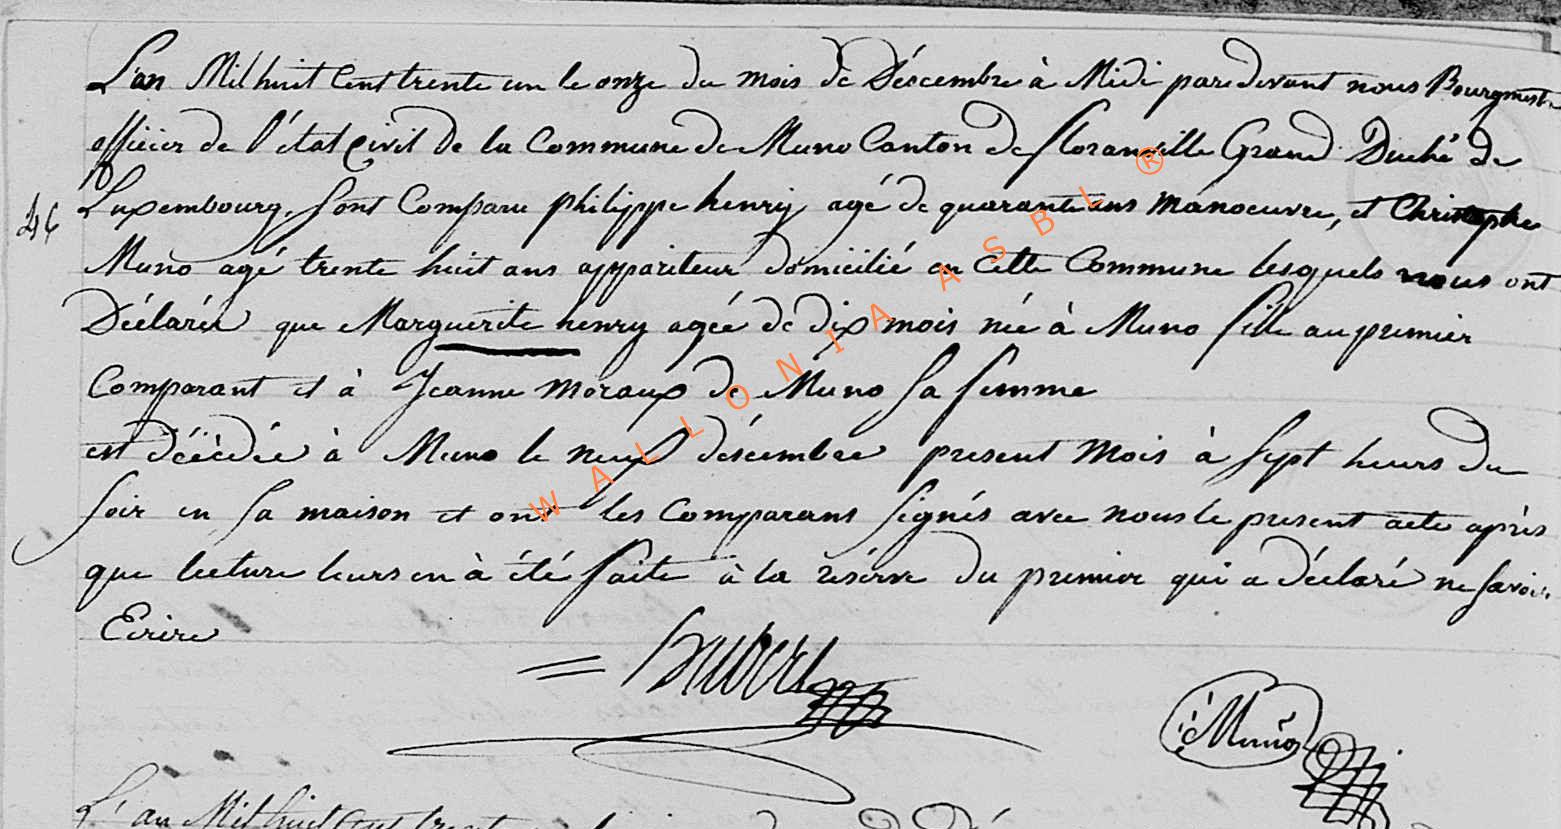 L'an Mil huit Cent trente un le onze du mois de Déscembre à Midi pardevant nous Bourgmest
officier de l'état Civil de la Commune de Muno Canton de floranville Grand Duché de
46
Luxembourg, Sont Comparu philippe henry agé de quarante ans Manoeuvre, et Christophe
Muno agé trente huit ans appariteur domicilié en Cette Commune lesquels nous ont
Déclarés que Marguerite henry agée de dix mois née à Muno fille au premier
Comparant et à Jeanne Moraux de Muno Sa femme
est décèdée à Muno le neuf déscembre present Mois à Sept heurs du
Soir en Sa maison et ont les Comparans Signés avec nous le present acte après
que lecture leurs en à été faite à la réserve du premier qui a déclaré ne Savoir
Ecrire
Hubert
Muno
L'an Mil huit Cent trent
WALLONIA ASBL ®